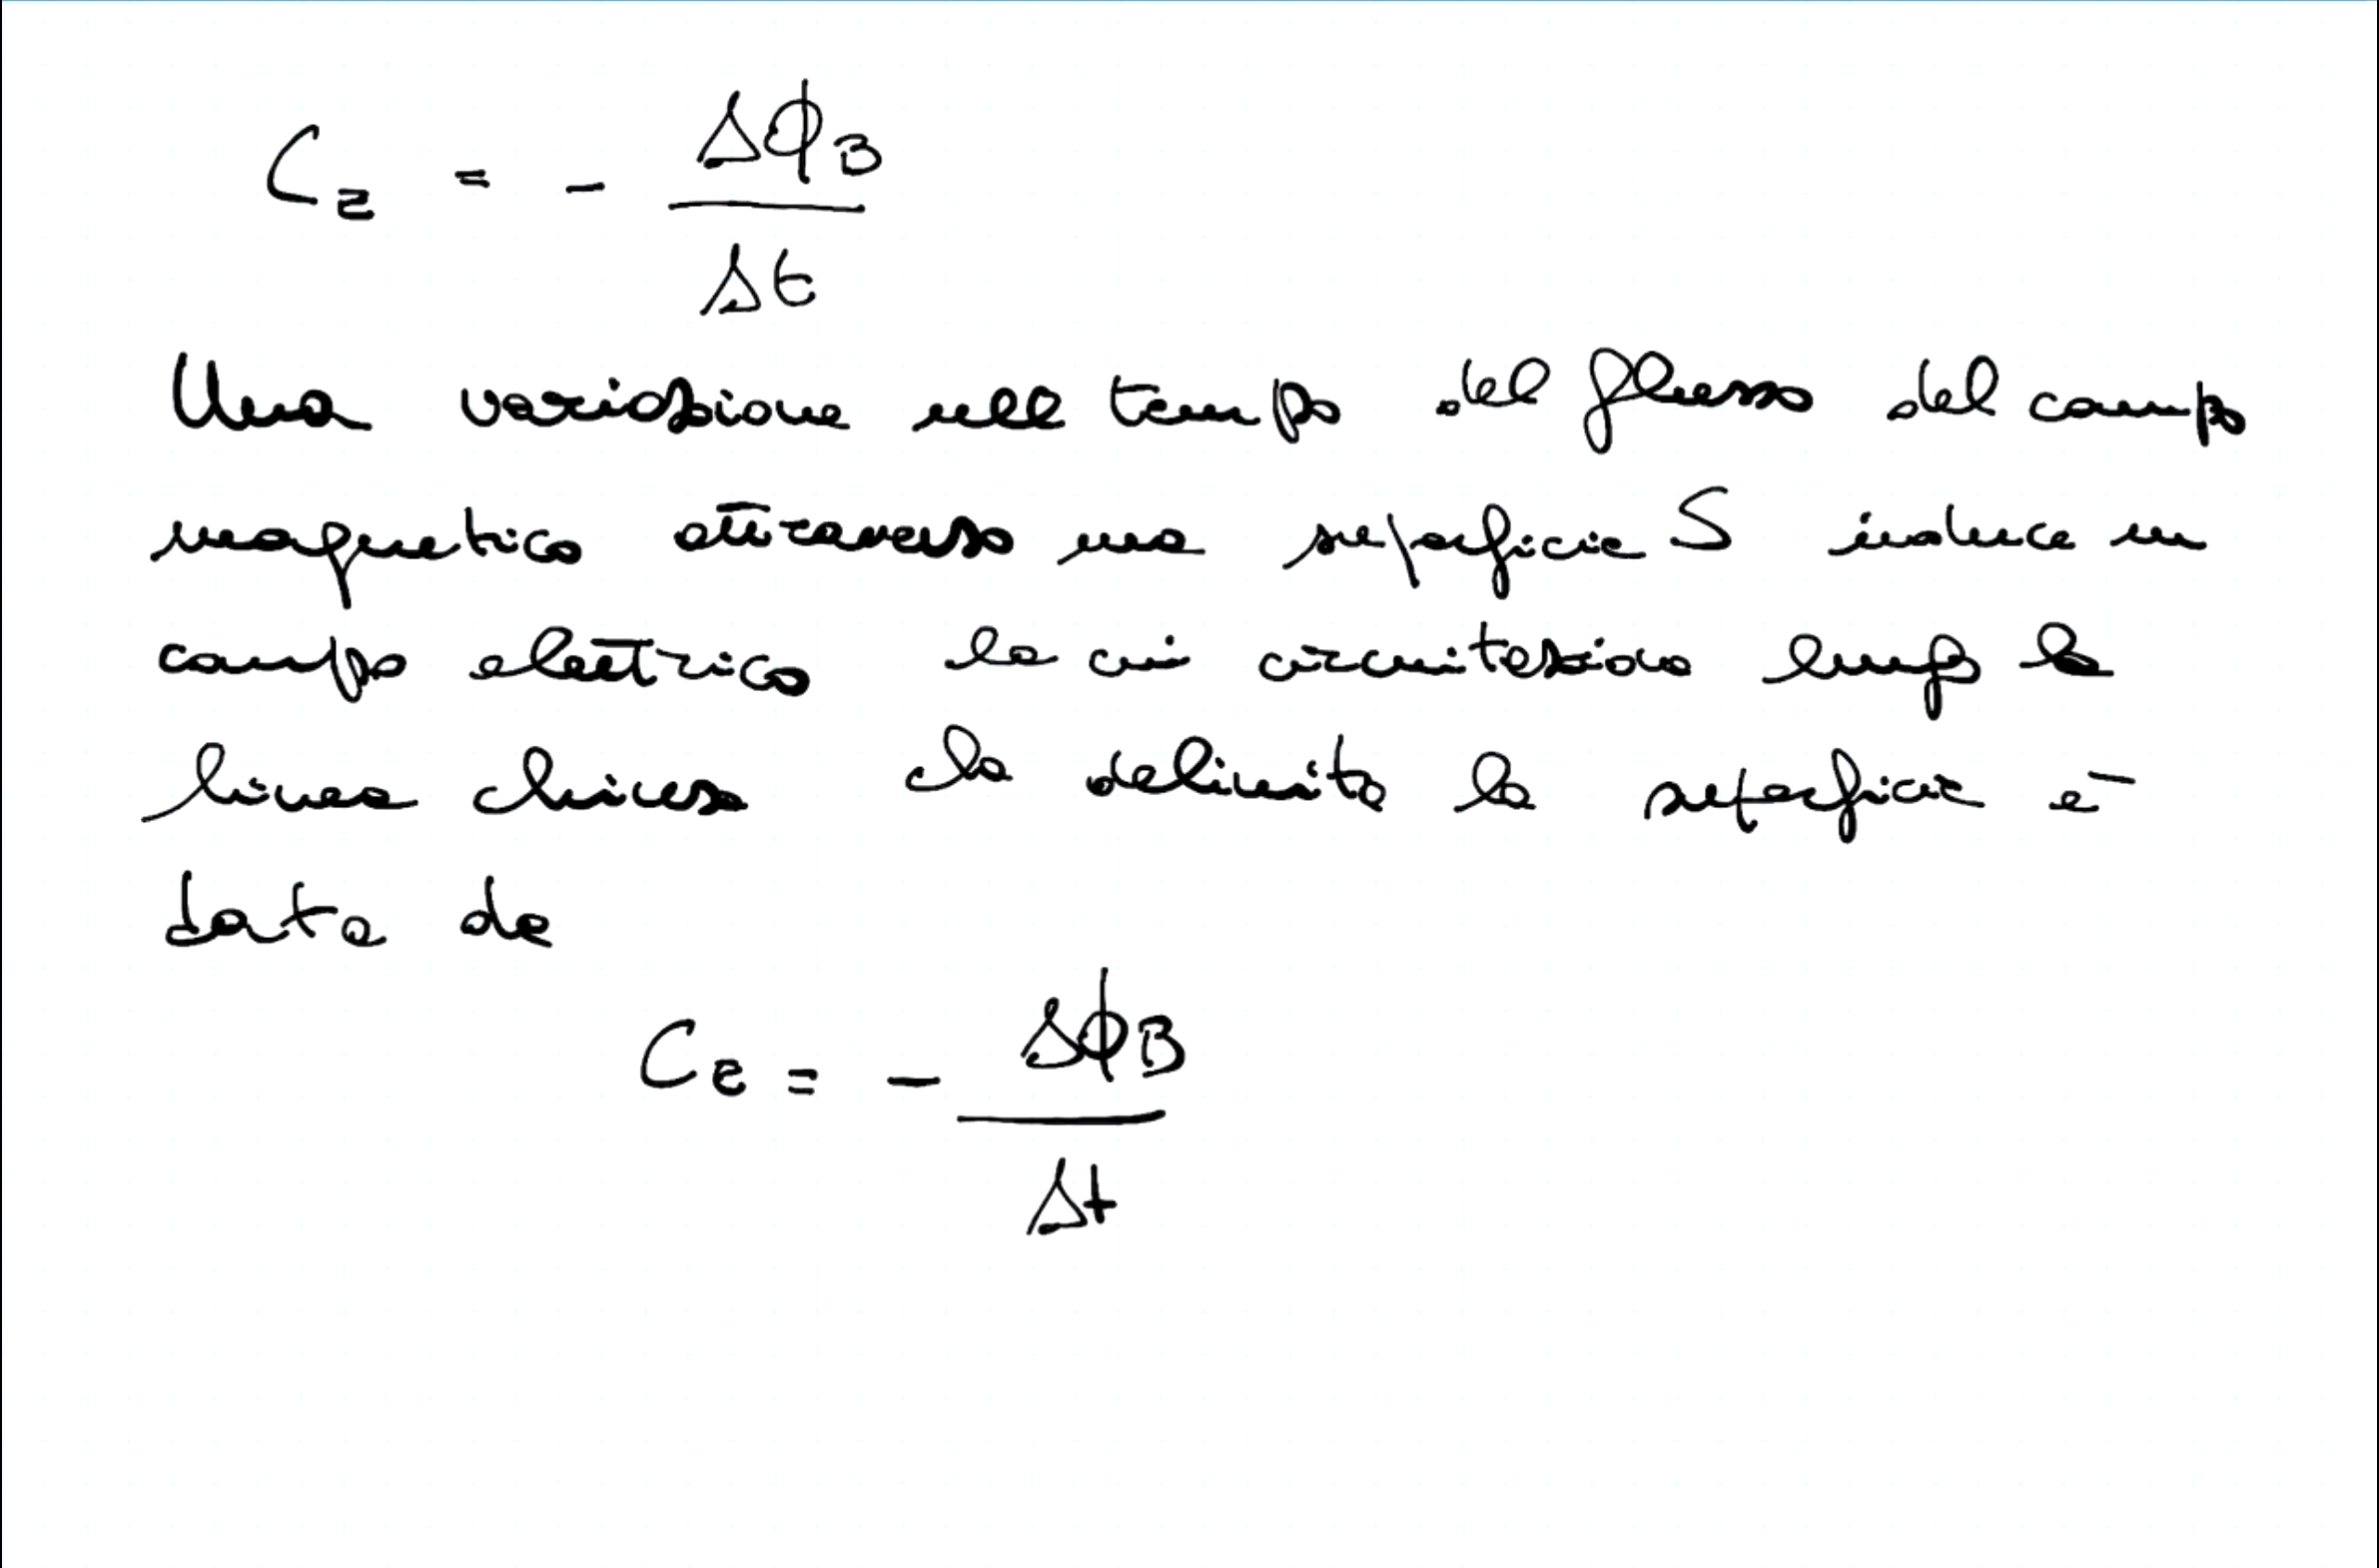 C_E = - ΔΦ_B / Δt
Una variazione nel tempo del flusso del campo
magnetico attraverso una superficie S induce un
campo elettrico la cui circuitazione lungo la
linea chiusa che delimita la superficie è
data da
C_E = - ΔΦ_B / Δt